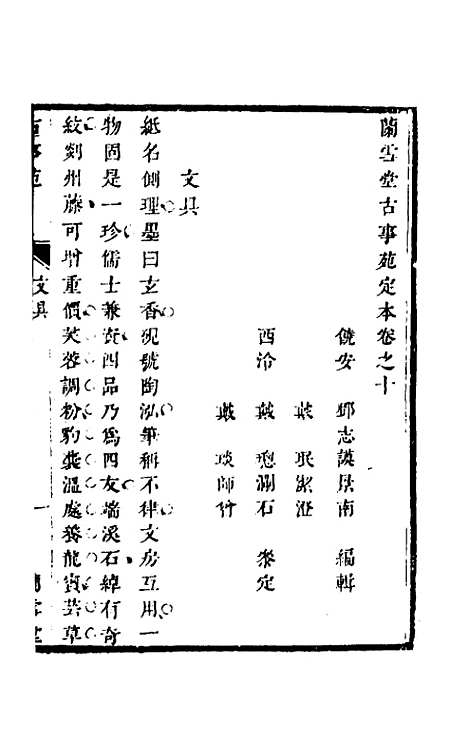 蘭雪堂古事苑定本卷之十
饒安 鄧志謨景南 編輯
戴 珉潔澄
西泠 戴 惠澗石 叅定
戴 琰師竹
文具
紙名側理墨曰玄香硯號陶泓筆稱不律文房互用一
物固是一珍儒士兼資四品乃爲四友端溪石綽有奇
紋剡州藤可增重價芙蓉調粉豹囊溫處養龍賓芸草
文具 一